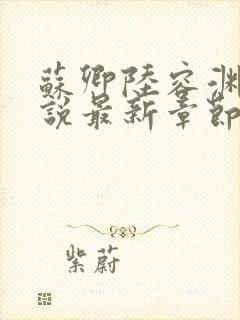 蘇卿陸容渊
說最新章節
紫蔚